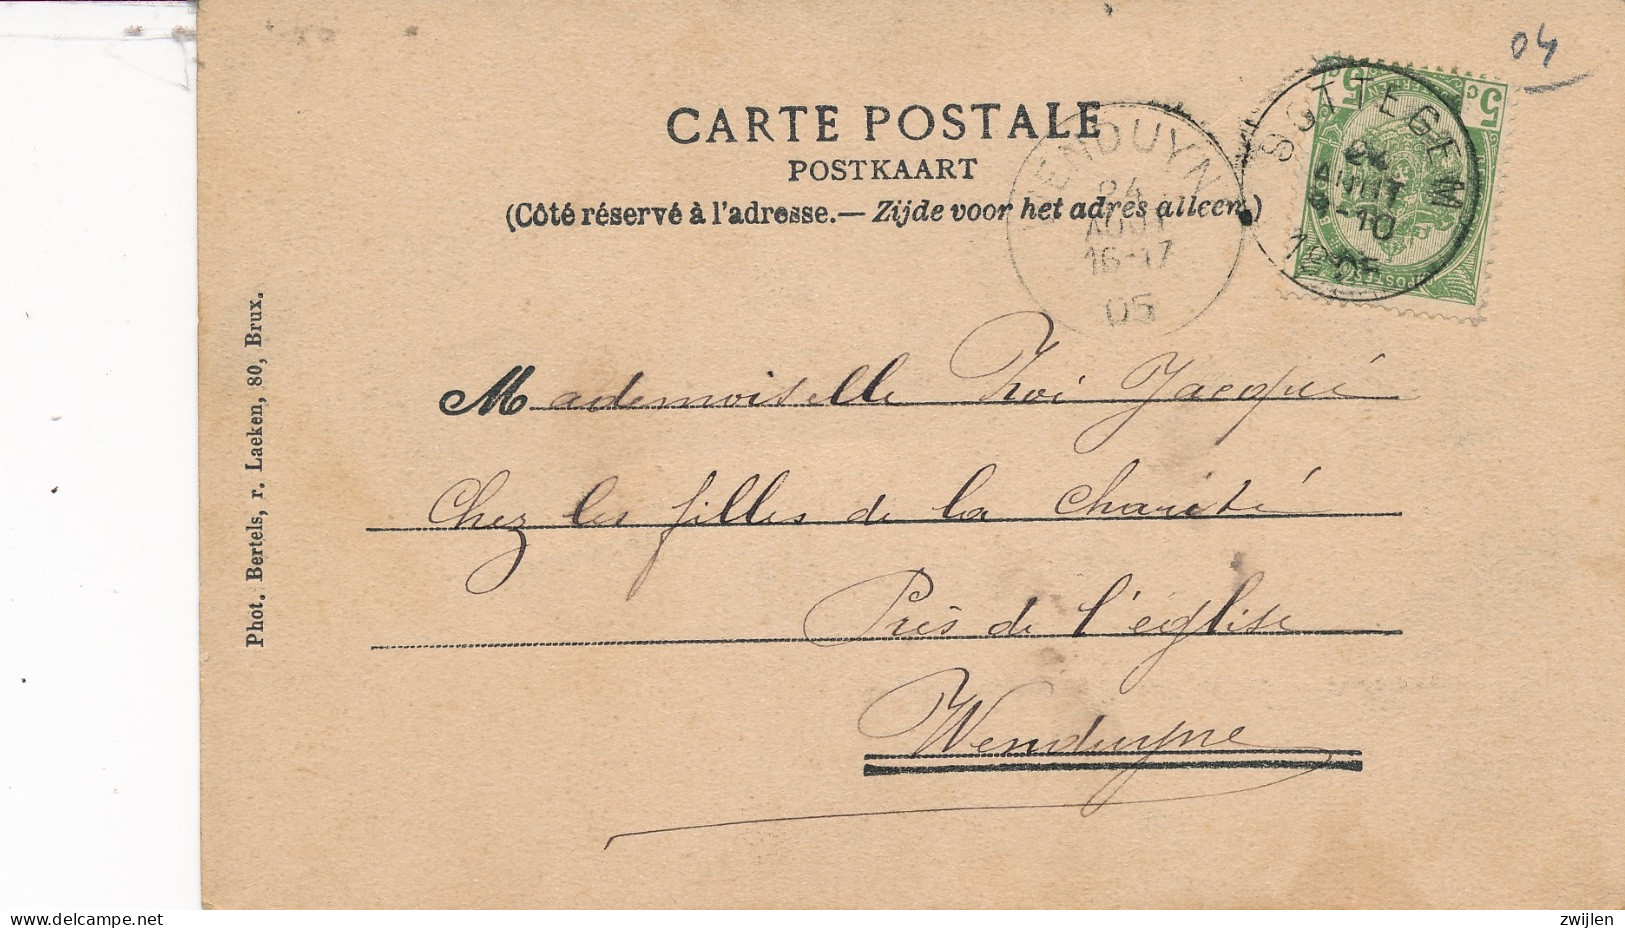 04
CARTE POSTALE
POSTKAART
(Côté réservé à l'adresse.— Zijde voor het adres alleen.)
WENDUYNE
24
AOUT
16-17
05
SOTTEGEM
24
AOUT
9-10
1905
5 C
5 C
POSTES
Mademoiselle Zoé Jacqué
Chez les filles de la Charité
Près de l'église
Wenduyne
Phot. Bertels, r. Laeken, 80, Brux.
delcampe.net
zwijlen